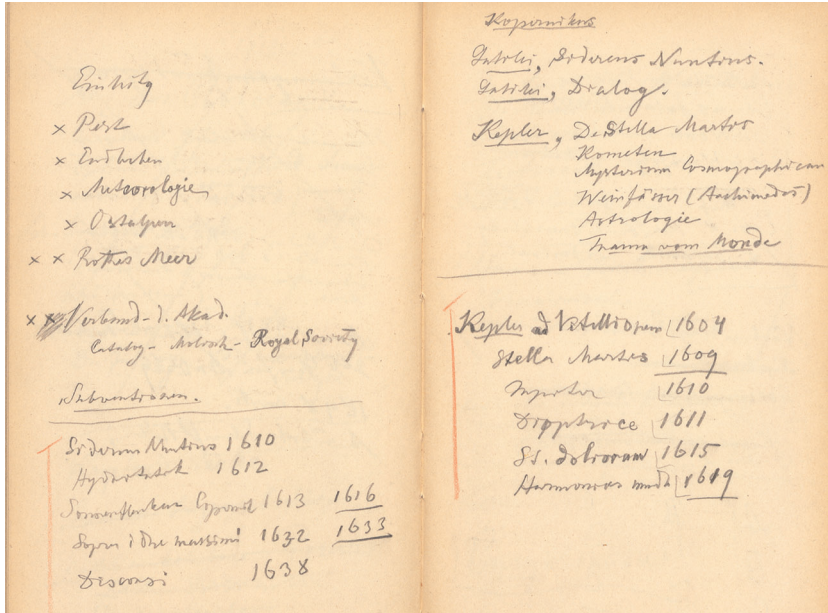 Einleitg
× Pest
× Erdbeben
× Meteorologie
× Ostalpen
× × Rothes Meer
× × Verband - d. Akad.
Catalog - Molusk - Royal Society
Subventionen.
Sidereus Nuntius 1610
Hydrostatik 1612
Sonnenflecken Copernic 1613 1616
Sopra i due massimi 1632 1633
Discorsi 1638
Kopernikus
Galilei, Sidereus Nuntius.
Galilei, Dialog.
Kepler, De Stella Martis
Kometen
Mysterium Cosmographicum
Weinfässer (Archimedes)
Astrologie
Traum vom Monde
Kepler ad Vitellionem 1604
Stella Martis 1609
1610
Dioptrice 1611
St. doliorum 1615
Harmonices mundi 1619